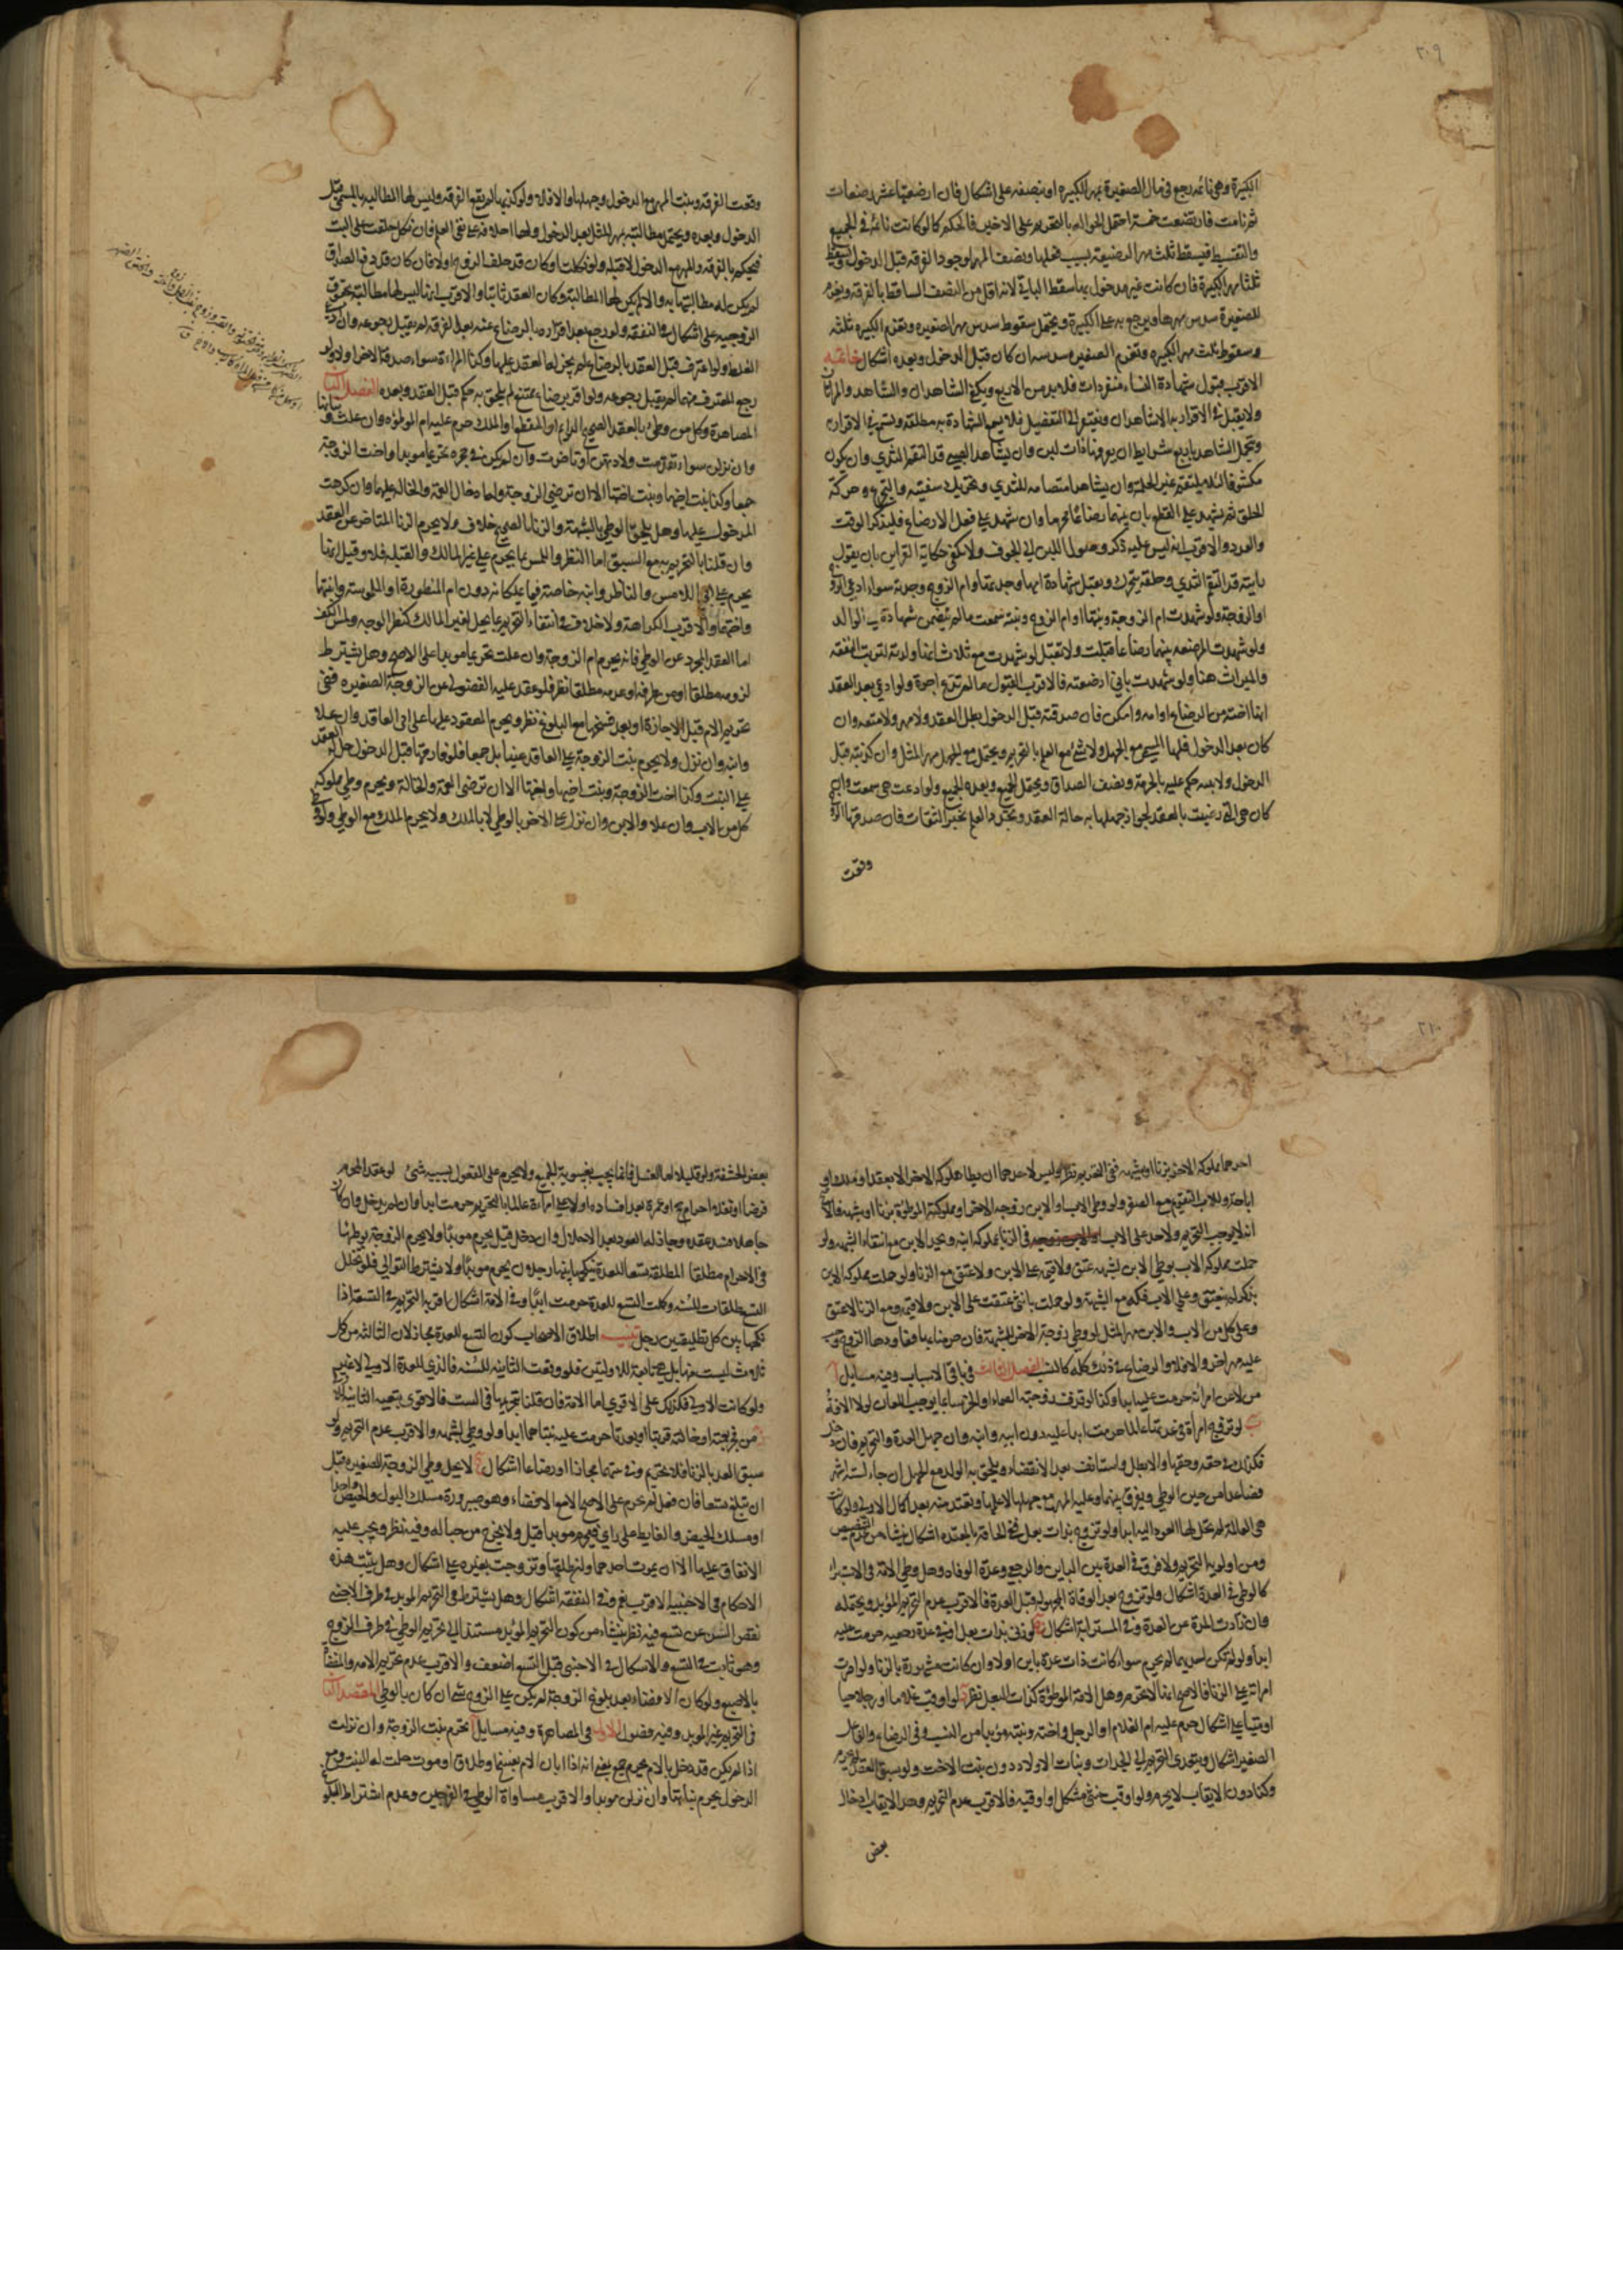 ٢٠٩
الكبيرة وهي نائمه رجع في مال الصغيرة بمهر الكبيره او بنصفه على اشكال فان ارضعتها عشر رضعات
ثم نامت فارتضعت خمسة احتمل الحواله بالتحريم على الاخير فالحكم كما لو كانت نائمة في الجميع
والتقسيط فيسقط ثلث مهر الرضيعة بسبب فعلها ونصف المهر لوجود الفرقه قبل الدخول
ثلثا مهر الكبيرة فان كانت غير مدخول بها سقط الباقي لانه اقل من النصف الساقط بالفرقه ويغرم
للصغيرة سدس مهرها ويرجع به على الكبيرة ويحتمل سقوط سدس مهر الصغيره وتغرم الكبيره ثلثه
وسقوط ثلث مهر الكبيره وتغرم الصغيره سدسه ان كان قبل الدخول وبعده اشكال خاتمة
الاقرب قبول شهادة النساء منفردات فلا بد من الاربع ويكفي الشاهدان والشاهد والمراتان
ولا يقبل في الاقرار به الا شاهدان ويفتقر الى التفصيل فلا يسمع الشهادة به مطلقه وتسمع في الاقرار
وتحمل الشاهد باربع شرايط ان يعرفها ذات لبن وان يشاهد الصبي قد التقم الثدي وان يكون
مكشوفا لئلا يلتقم غير الحلمة وان يشاهد امتصاصه للثدي وتحريك شفتيه والتجرع وحركة
الحلق ثم يشهد على القطع بان بينهما رضاعا محرما وان شهد على فعل الارضاع فليذكر الوقت
والعدد والاقرب انه ليس عليه ذكر وصول اللبن الى الجوف ولا تكفي حكاية القراين بان يقول
رايته قد التقم الثدي وحلقه يتحرك ويقبل شهادة امها وجدتها وام الزوج وجدته سواء ادعى الزوج
او الزوجة ولو شهدت ام الزوجة وبنتها او ام الزوج وبنته سمعت ما لم يتضمن شهادة على الوالد
ولو شهدت المرضعه بينهما رضاعا قبلت ولا تقبل لو شهدت مع ثلاث انها ولدته لترتب النفقه
والميراث هنا ولو شهدت باني ارضعته فالاقرب القبول ما لم تدع اجرة ولو ادعى بعد العقد
انها اخته من الرضاع او امه وامكن فان صدقته قبل الدخول بطل العقد ولا مهر ولا متعه وان
كان بعد الدخول فلها المسمى مع الجهل ولا شيء مع العلم بالتحريم ويحتمل مع الجهل مهر المثل وان كذبته قبل
الدخول ولا بينه حكم عليه بالحرمة ونصف الصداق ويحتمل الجميع وبعده الجميع ولو ادعت هي سمعت وان
كان هي التي رضيت بالعقد لجواز جهلها به حالة العقد وتجدد العلم بخبر الثقات فان صدقها الزوج
وقعت
وقعت الفرقه ويثبت المهر مع الدخول وجهلها والا فلا ولو كذبها لم يقع الفرقه وليس لها المطالبه بالمسمى قبل
الدخول وبعده ويحتمل مطالبته بمهر المثل بعد الدخول ولها احلافه على نفي العلم فان نكل حلفت على البت
فيحكم بالفرقه والمهر مع الدخول لا قبله ولو نكلت او كان قد حلف الزوج اولا فان كان قد دفع الصداق
لم يكن له مطالبتها به والا لم يكن لها المطالبة وكان العقد ثابتا والاقرب انها ليس لها مطالبته بحقوق
الزوجيه على اشكال في النفقه ولو رجع بعد اقراره بالرضاع عنه بعد الفرقه لم يقبل رجوعه وان ادعى
الغلط ولو اعترف قبل العقد بالرضاع لم يجز لها العقد عليها وكذا المراه سواء صدقه الاخر او لا ولو
رجع المعترف منهما لم يقبل رجوعه ولو اقر برضاع ممتنع لم يلحق به حكم قبل العقد وبعده الفصل الثاني
المصاهرة وكل من وطئ بالعقد الصحيح الدايم او المنقطع او الملك حرم عليه ام الموطؤه وان علت وبناتها
وان نزلن سواء تقدمت ولادتهن او تاخرت وان لم يكن في حجره تحريما موبدا واخت الزوجة
جمعا وكذا بنت اختها وبنت اخيها الا ان ترضى الزوجة ولها ادخال العمه والخاله عليها وان كرهت
المدخول عليها وهل يلحق الوطي بالشبهة والزنا بالصحيح خلاف ولا يحرم الزنا المتاخر عن العقد
وان قلنا بالتحريم به مع السبق اما النظر واللمس بما يحرم على غير المالك والقبله فلا وقيل انها
يحرم على اب اللامس والناظر وابنه خاصة فيما يملكانه دون ام المنظورة او الملموسة وابنتها
واختها والاقرب الكراهة ولا خلاف في انتفاء التحريم بما يحل لغير المالك كنظر الوجه ولمس الكف
اما العقد المجرد عن الوطي فانه يحرم ام الزوجة وان علت تحريما موبدا على الاصح وهل يشترط
لزومه مطلقا او من طرفه او عدمه مطلقا نظر فلو عقد عليه الفضولي عن الزوجة الصغيره ففي
تحريم الام قبل الاجازة او بعد فسخها مع البلوغ نظر ويحرم المعقود عليها على اب العاقد وان علا
وابنه وان نزل ولا يحرم بنت الزوجة على العاقد عينا بل جمعا فلو فارقها قبل الدخول حل له العقد
على البنت وكذا اخت الزوجة وبنت اخيها واختها الا ان ترضى العمة والخالة ويحرم وطي مملوكة
كل من الاب وان علا والابن وان نزل على الاخر بالوطي لا بالملك ولا يحرم الملك مع الوطي ولو وطئ
٢١٠
احدهما مملوكه الاخر بزنا او شبهه ففي التحريم نظر وليس لاحدهما ان يطا مملوكه الاخر الا بعقد او ملك او
اباحة وللاب التقويم مع الصغر ولو وطئ الاب او الابن زوجة الاخر او مملوكته الموطؤة بزنا او شبهه فالاقرب
انه لا يوجب التحريم ولا حد على الاب في الزنا بمملوكة ابنه ويحد الابن مع انتفاء الشبهه ولو
حملت مملوكه الاب بوطي الابن لشبهه عتق ولا قيمة على الابن ولا عتق مع الزنا ولو حملت مملوكه الابن
بذكر لم ينعتق وعلى الاب فكه مع الشبهة ولو حملت بانثى عتقت على الابن ولا قيمة ومع الزنا لا عتق
وعلى كل من الاب والابن مهر المثل لو وطئ زوجة الاخر للشبهة فان حرمناه بها وعاودها الزوج وجب
عليه مهر اخر والا فلا والرضاع في ذلك كله كالنسب الفصل الثالث في باقي الاسباب وفيه مسايل ا
من لاعن امراته حرمت عليه ابدا وكذا لو قذف زوجته الصماء او الخرساء بما يوجب اللعان لولا الافة
ب لو تزوج امراة في عدتها عالما حرمت ابدا عليه دون ابيه وابنه وان جهل العدة والتحريم فان دخل
فكذلك في حقه وحقها والا بطل واستانف بعد الانقضاء ويلحق به الولد مع الجهل ان جاء لستة اشهر
فصاعدا من حين الوطي ويفرق بينهما وعليه المهر مع جهلها لا علمها وتعتد منه بعد اكمال الاولى ولو كانت
هي العالمة لم تحل لها العود اليه ابدا ولو تزوج بذات بعل ففي الحاقه بالمعتده اشكال ينشا من عدم التنصيص
ومن اولويه التحريم ولا فرق في العدة بين الباين والرجعي وعدة الوفاة وهل وطي الامة في الاستبراء
كالوطي في العدة اشكال ولو تزوج بعد الوفاة المجهولة قبل العدة فالاقرب عدم التحريم المؤبد ويحتمله
وان زادت المدة عن العدة وفي المسترابة اشكال ج لو زنى بذات بعل او في عدة رجعيه حرمت عليه
ابدا ولو لم تكن احديهما لم يحرم سواء كانت ذات عدة باين او لا وان كانت مشهورة بالزنا ولو اصرت
امراته على الزنا فالاصح انها لا تحرم وهل الامة الموطؤة كذات البعل نظر د لو اوقب غلاما او رجلا حيا
او ميتا على اشكال حرم عليه ام الغلام او الرجل واخته وبنته مؤبدا من النسب وفي الرضاع والفاعل
الصغير اشكال ويتعدى التحريم الى الجدات وبنات الاولاد دون بنت الاخت ولو سبق العقل لم يحرم
وكذا دون الايقاب لا يحرم ولو اوقب خنثى مشكل او اوقبه فالاقرب عدم التحريم وحد الايقاب ادخال
بعض
بعض الحشفة ولو قليلا اما الغسل فانما يجب بغيبوبة الجميع ولا يحرم على المفعول بسببه شئ لو عقد المحرم
فرضا او نفلا احرام حج او عمرة بعد افساده او لا على امراة عالما بالتحريم حرمت ابدا وان لم يدخل وان كان
جاهلا فسد عقده وجاز له العود بعد الاحلال وان دخل قيل يحرم موبدا ولا يحرم الزوجة بوطئها
في الاحرام مطلقا المطلقه تسعا للعدة ينكحها بينها رجلان يحرم موبدا ولا يشترط التوالي فلو تخلل
التسع طلقات للسنه وكملت التسع للعدة حرمت ابدا وفي الامة اشكال اقربه التحريم في التسعة اذا
نكحها بين كل تطليقتين رجل تنبيه اطلاق الاصحاب كون التسع للعدة مجاز لان الثالثه من كل
ثلاث ليست منها بل هي تابعة للاوليتين فلو وقعت الثانيه للسنه فالذي للعدة الاولى لا غير
ولو كانت الاولى فكذلك على الاقوى اما الامة فان قلنا بتحريمها في الست فالاقوى
من فجر بعمته او خالته قريبا او بعدا حرمت عليه بنتاهما ابدا ولو وطئ لشبهه فالاقرب عدم التحريم ولو
سبق العقد بالزنا فلا تحريم وفي بنتهما مجازا او رضاعا اشكال لا يحل وطي الزوجة الصغيره قبل
ان تبلغ تسعا فان فعل لم تحرم على الاصح الا مع الافضاء وهو صيرورة مسلك البول والحيض واحدا
او مسلك الحيض والغايط على راي فيحرم موبدا قيل ولا يخرج من حباله وفيه نظر ويجب عليه
الانفاق عليها الا ان يموت احدهما ولو طلقها وتزوجت بغيره على اشكال وهل يثبت هذه
الاحكام في الاجنبيه الاقرب نعم وفي النفقه اشكال وهل يشترط في التحريم الموبد في طرف الاجنبي
نقص السن عن تسع فيه نظر ينشاء من كون التحريم الموبد مستندا الى تحريم الوطي في طرف الزوج
وهو ثابت في التسع والاشكال في الاجنبي قبل التسع اضعف والاقرب عدم تحريم الامه والمفضاة
بالاصبع ولو كان الافضاء بعد بلوغ الزوجة لم يكن على الزوج شئ ان كان بالوطي المقصد الثاني
في التحريم غير الموبد وفيه فصول الاول في المصاهرة وفيه مسايل ا تحرم بنت الزوجة وان نزلت
اذا لم يكن قد دخل بالام تحريم جمع بمعنى انه اذا ابان الام بفسخ او طلاق او موت حلت له البنت ومع
الدخول يحرم بناتها وان نزلن موبدا والاقرب مساواة الوطي في الفرجين وعدم اشتراط البلوغ